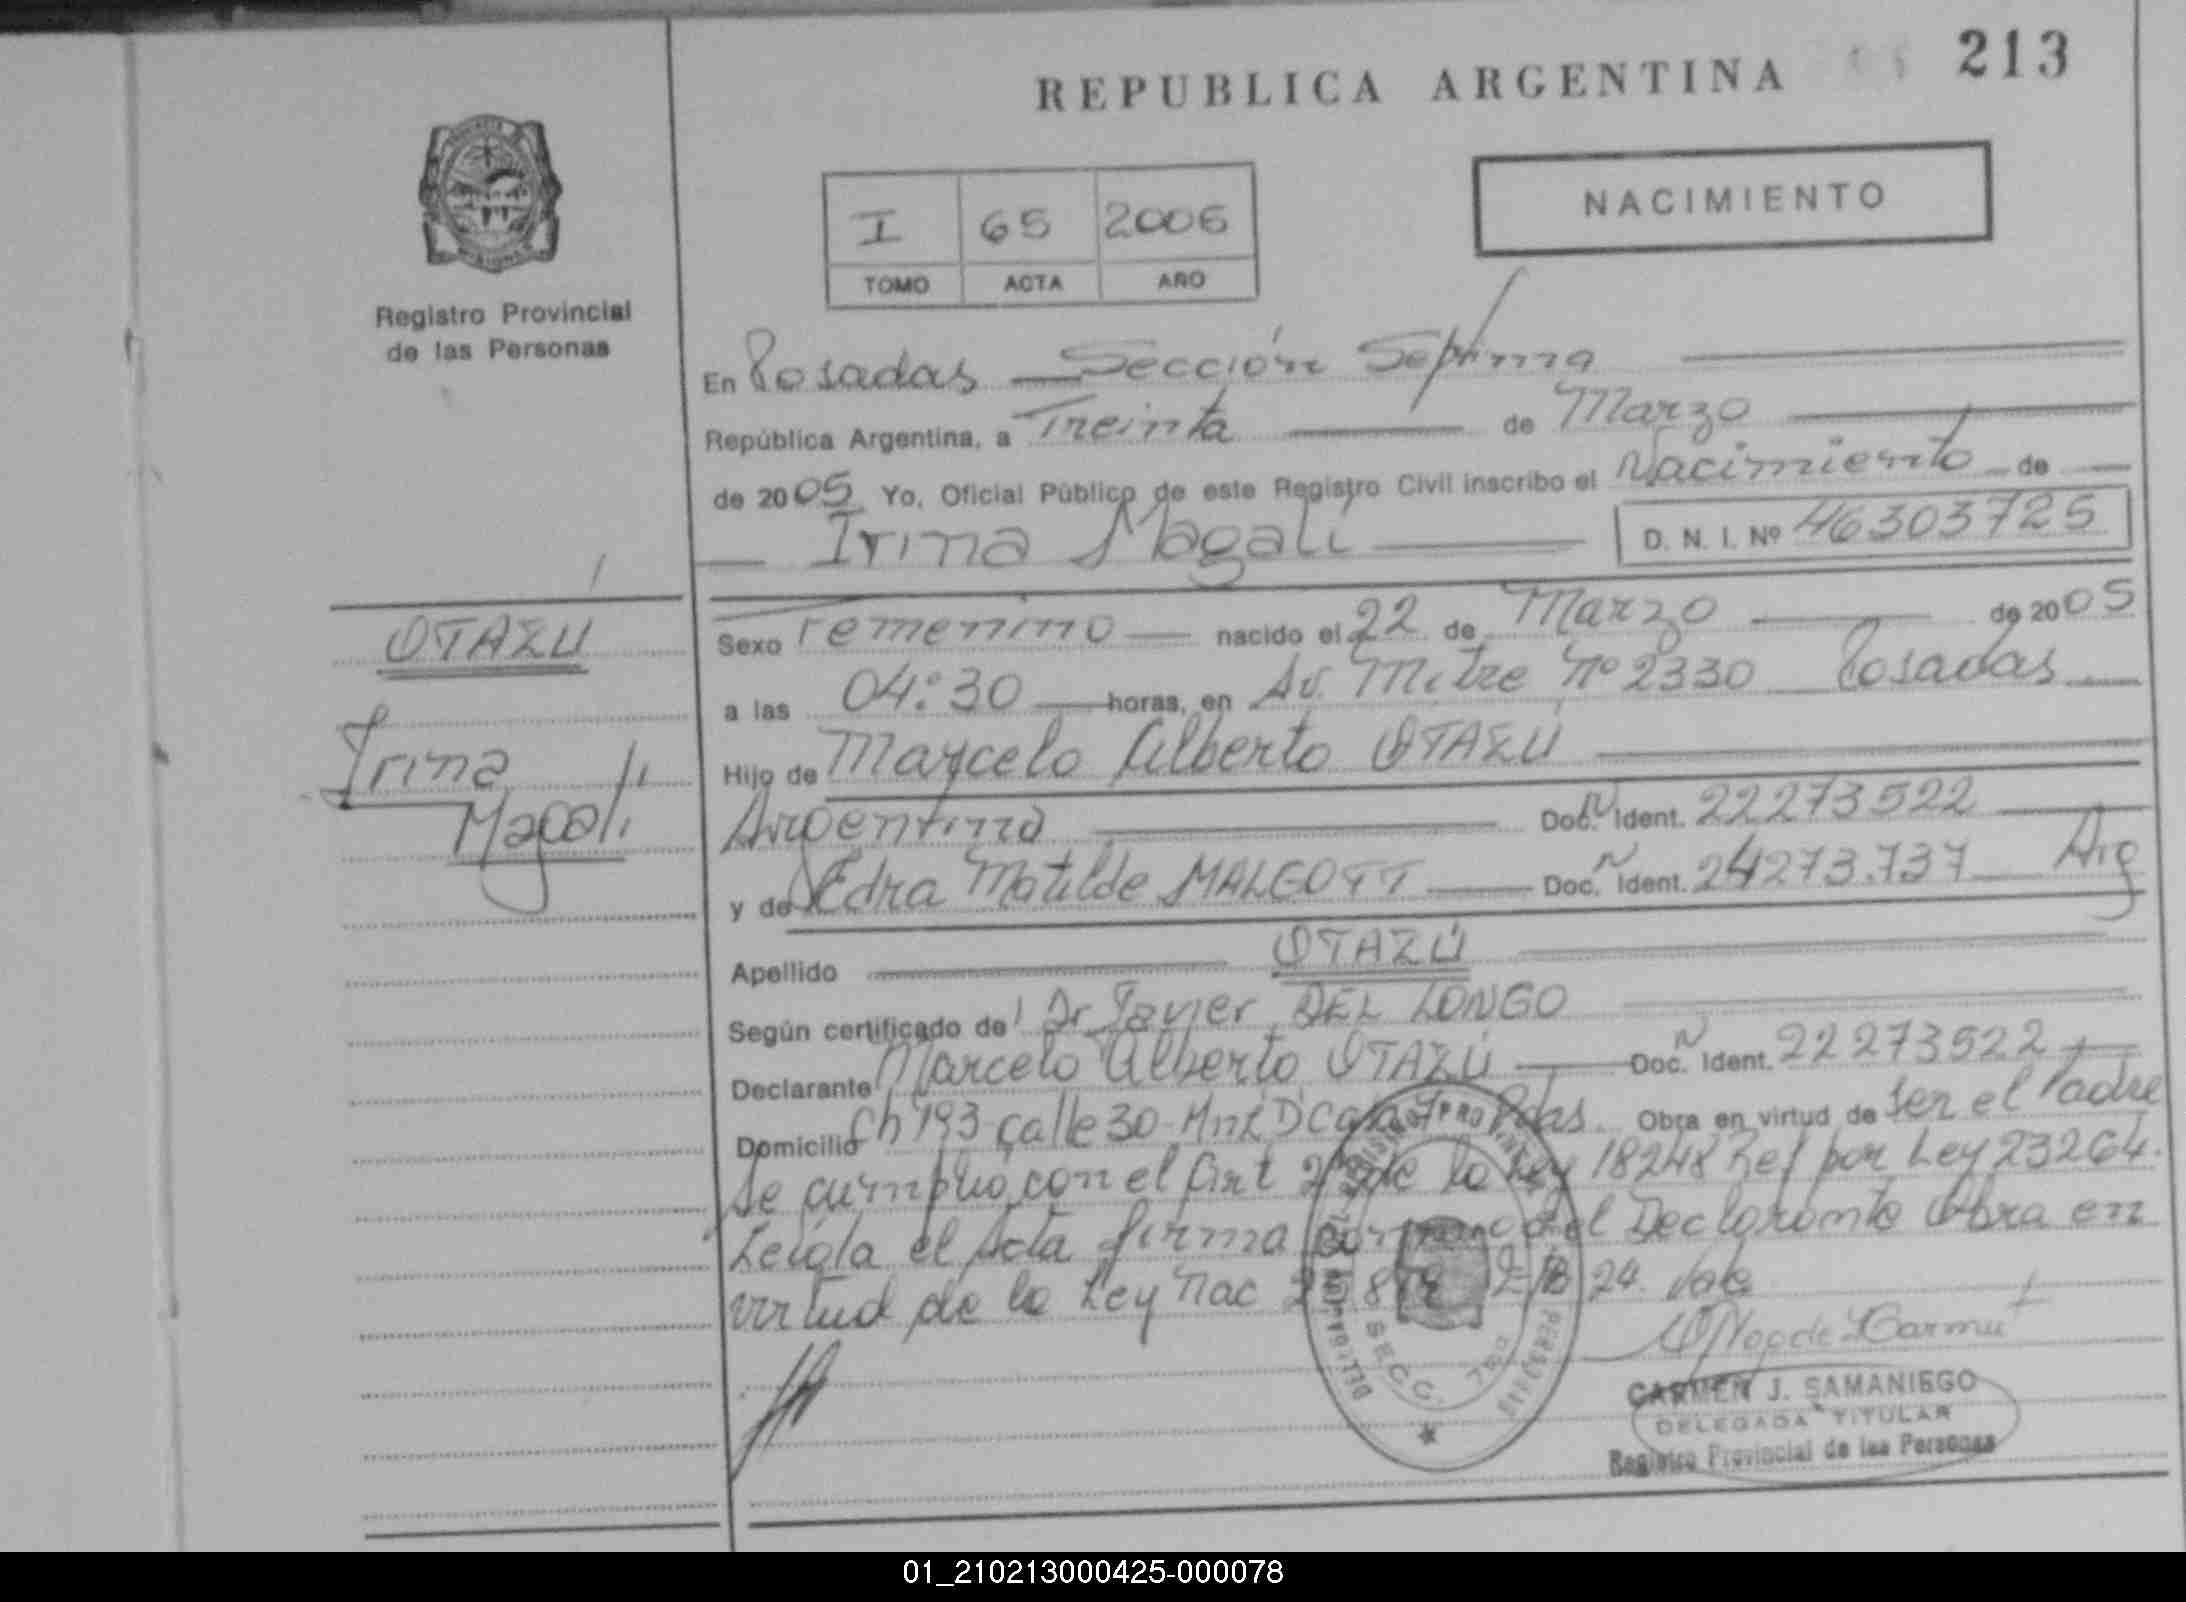 213
REPUBLICA ARGENTINA
NACIMIENTO
I 65 2006
TOMO ACTA AÑO
Registro Provincial
de las Personas
En Posadas Sección Séptima
República Argentina, a Treinta de Marzo
de 2005 Yo, Oficial Público de este Registro Civil inscribo el Nacimiento de
Irina Magalí D. N. I. Nº 46303725
OTAZÚ
Irina
Magalí
Sexo Femenino nacido el 22 de Marzo de 2005
a las 04:30 horas, en Av. Mitre Nº 2330 Posadas
Hijo de Marcelo Alberto OTAZÚ
Argentina Doc. Ident. 22273522
y de Edra Matilde MALGOTT Doc. Ident. 24273.737 Arg
Apellido OTAZÚ
Según certificado de Dr Javier DEL LONGO
Declarante Marcelo Alberto OTAZÚ Doc. Ident. 22273522
Domicilio Ch 193 calle 30 Mnz D Casa Pdas. Obra en virtud de ser el Padre
Se cumplió con el Art 2 de la Ley 18248 Ref por Ley 23264.
Leída el Acta firma conmigo el Declarante Obra en
virtud de la Ley Nac 24. Vale
SECC. 7ma
CARMEN J. SAMANIEGO
DELEGADA TITULAR
Registro Provincial de las Personas
01_210213000425-000078